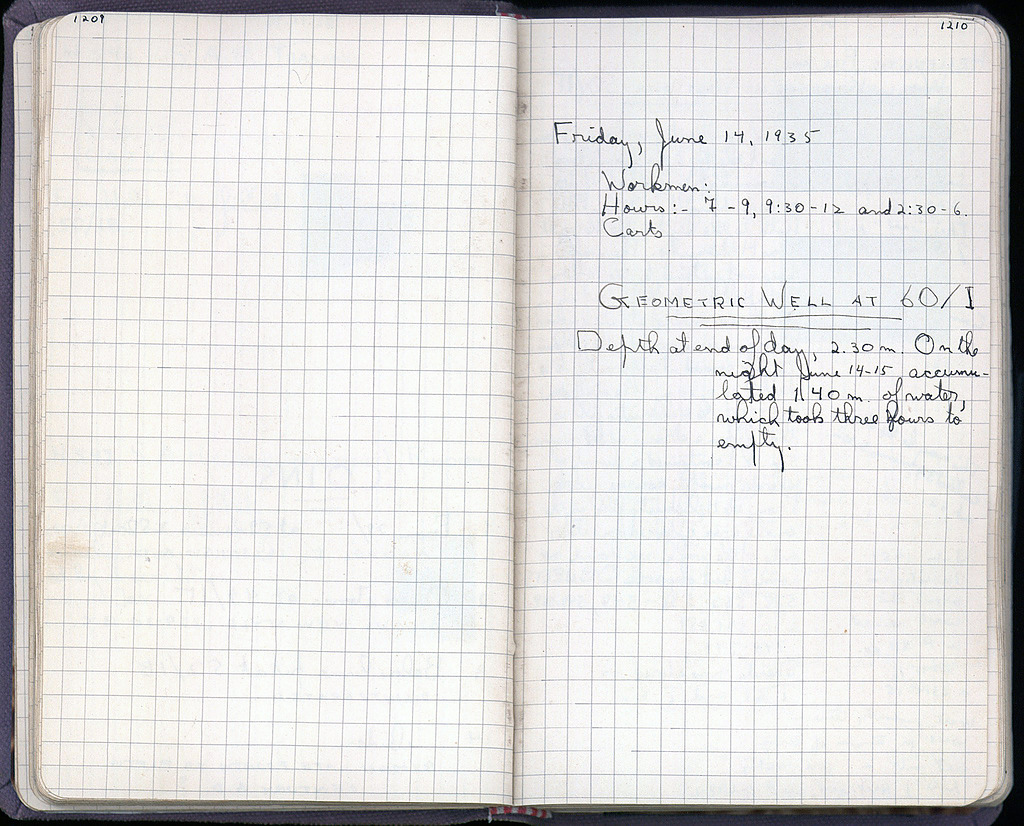 1209
1210
Friday, June 14, 1935
Workmen:
Hours:- 7-9, 9:30-12 and 2:30-6.
Carts
GEOMETRIC WELL AT 60/I
Depth at end of day, 2.30 m. On the
night June 14-15 accumu-
lated 1.40 m. of water,
which took three hours to
empty.